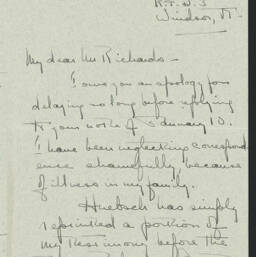 R.F.D. 3
Windsor, Vt.
My dear Mr Richards -
I owe you an apology for
delaying so long before replying
to your note of January 10.
I have been neglecting correspond
ence shamefully because
of illness in my family.
Huebsch has simply
reprinted a portion of
my testimony before the